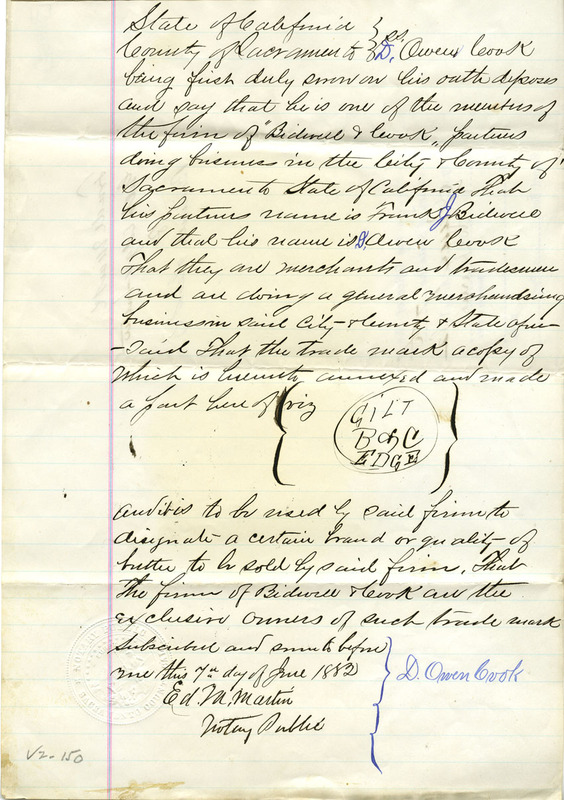 State of California } ss.
County of Sacramento } D. Owen Cook
being first duly sworn on his oath deposes
and say that he is one of the members of
the firm of "Bidwell & Cook", partners
doing business in the City & County of
Sacramento State of California That
his partners name is Frank J Bidwell
and that his name is D. Owen Cook
That they are merchants and tradesmen
and are doing a general merchandising
business in said City & County & State afore
-said That the trade mark a copy of
which is hereunto annexed and made
a part here of viz
{ GILT
B & C
EDGE }
and it is to be used by said firm to
designate a certain brand or quality of
butter to be sold by said firm. That
the firm of Bidwell & Cook are the
exclusive owners of such trade mark
Subscribed and sworn to before
me this 7th day of June 1882 } D. Owen Cook
Ed. M. Martin
Notary Public
V2-150